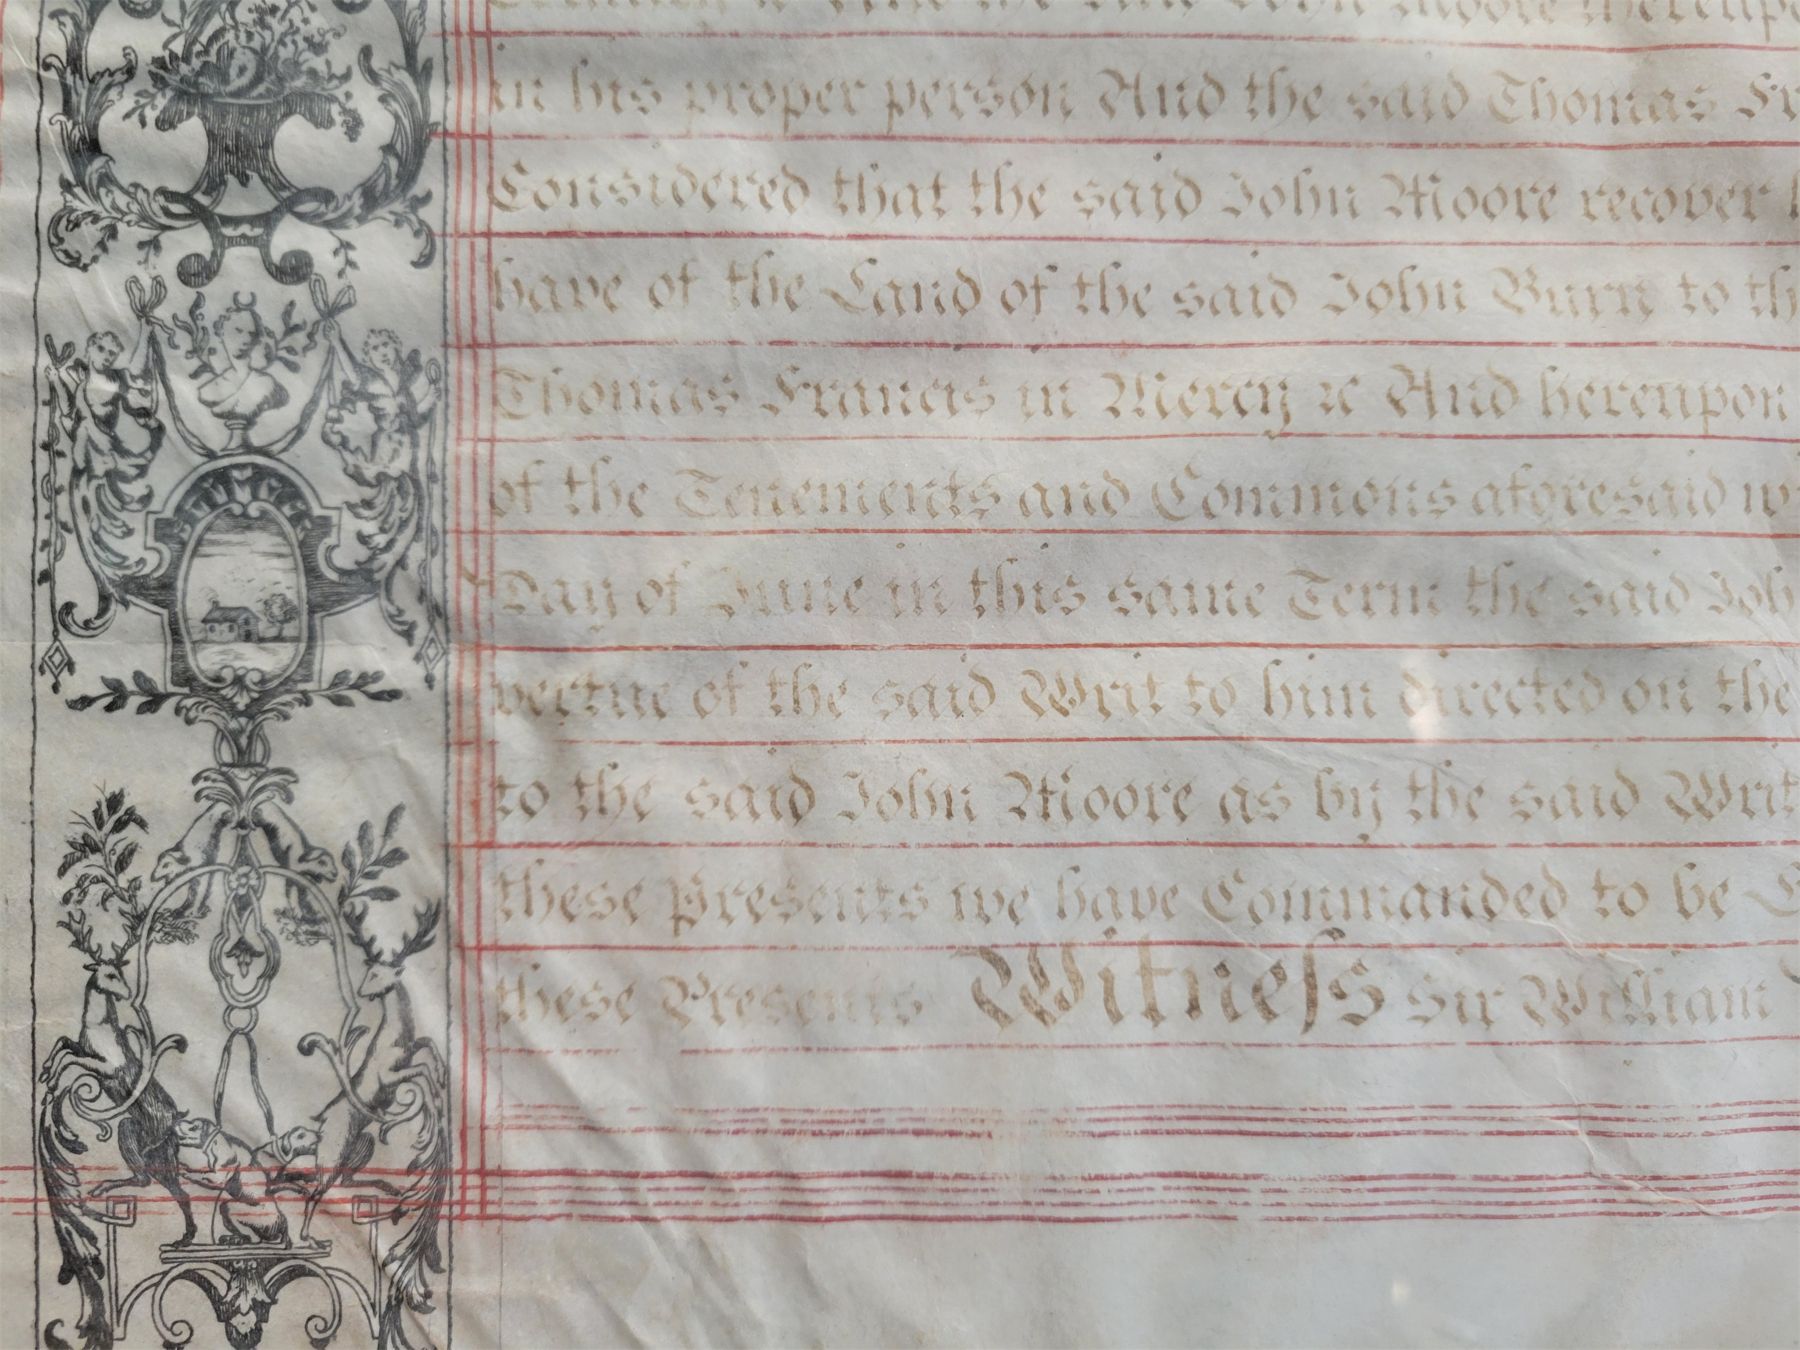 John Moore thereupo
in his proper person And the said Thomas Fr
Considered that the said John Moore recover
have of the Land of the said John Burn to th
Thomas Francis in Mercy &c And hereupon
of the Tenements and Commons aforesaid w
Day of June in this same Term the said Joh
vertue of the said Writ to him directed on the
to the said John Moore as by the said Writ
these Presents we have Commanded to be
these Presents Witneſs Sir William